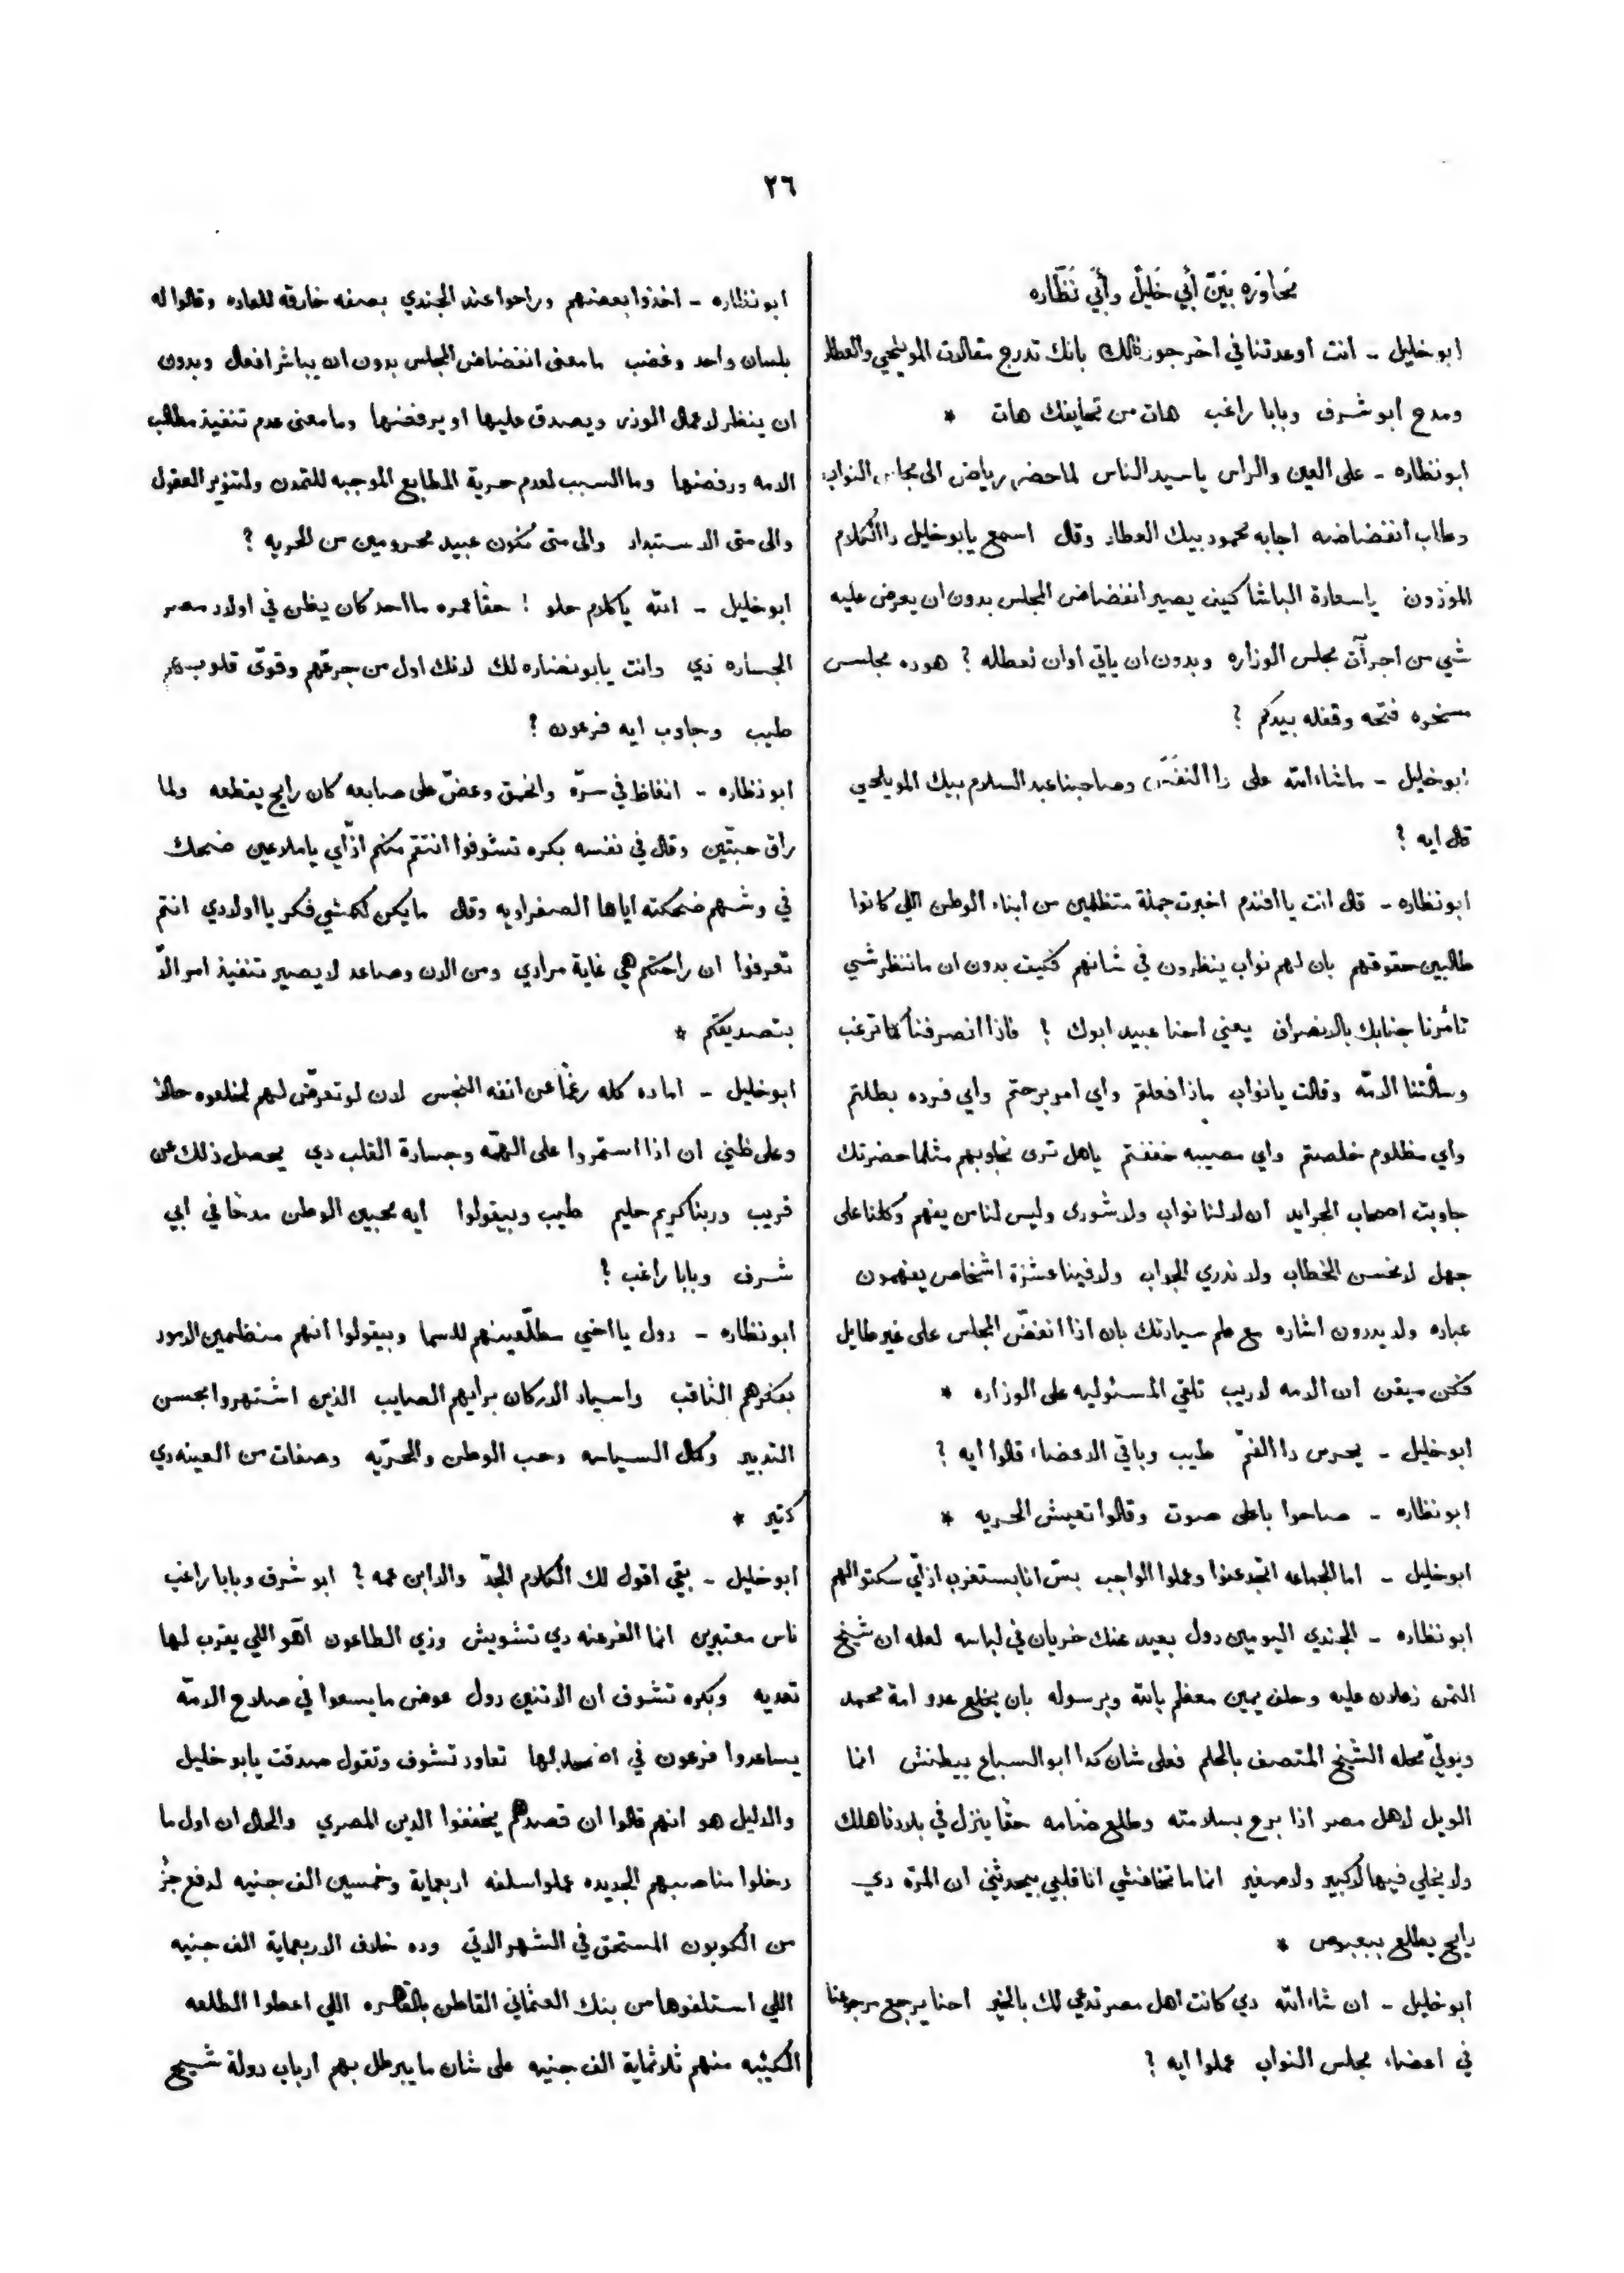 ٢٦
مُحَاوَرَه بَيْنَ أَبِي خَلِيلْ وأَبِي نَظَّارَه
ابو خليل - انت اوعدتنا في اخر جورنالك بانك تدرج مقالات المويلحي والعطار
ومدح ابو شرف وبابا راغب هات من تحايفك هات *
ابو نظاره - على العين والراس يا سيد الناس لما حضر رياض الى مجلس النواب
وطلب انفضاضه اجابه محمود بيك العطار وقال اسمع يابو خليل دا الكلام
الموزون يا سعادة الباشا كيف يصير انفضاض المجلس بدون ان يعرض عليه
شي من اجرآت مجلس الوزاره وبدون ان ياتي اوان تعطله ? هو ده مجلس
مسخره فتحه وقفله بيدكم ?
ابو خليل - ماشاء الله على دا النفَس وصاحبنا عبد السلام بيك المويلحي
قال ايه ?
ابو نظاره - قال انت يا افندم اخبرت جملة متظلمين من ابناء الوطن اللي كانوا
طالبين حقوقهم بان لهم نواب ينظرون في شانهم فكيف بدون ان ما ننظر شي
تأمرنا جنابك بالانصراف يعني احنا عبيد ابوك ? فاذا انصرفنا كما ترغب
وسألتنا الامّه وقالت يا نواب ماذا فعلتم واي امر برحتم واي فرده بطلتم
واي مظلوم خلصتم واي مصيبه خففتم يا هل ترى نجاوبهم مثلما حضرتك
جاوبت اصحاب الجرايد ان لا لنا نواب ولا شورى وليس لنا من يفهم وكلنا على
جهل لا نحسن الخطاب ولا ندري الجواب ولا فينا عشرة اشخاص يفهمون
عباره ولا يدرون اشاره مع علم سيادتك بان اذا انفضّ المجلس على غير طايل
فكن ميقن ان الامه لا ريب تلقي المسئوليه على الوزاره *
ابو خليل - يحرس دا الفمّ طيب وباقي الاعضاء قالوا ايه ?
ابو نظاره - صاحوا باعلى صوت وقالوا تعيش الحريه *
ابو خليل - اما الجماعه اتجدعنوا وعملوا الواجب بسّ انا بستغرب ازاي سكتوا لهم
ابو نظاره - الجندي اليومين دول بعيد عنك خريان في لباسه لعله ان شيخ
التمن زعلان عليه وحلف يمين معظم بالله وبرسوله بان يخلع عدو امة محمد
ويولّي محله الشيخ المتصف بالحلم فعلى شان كدا ابو السباع بيطنش انما
الويل لاهل مصر اذا برح بسلامته وطلع ضامه حقا ينزل في بلادنا هلك
ولا يخلي فيها لا كبير ولا صغير انما ما تخافشي انا قلبي بيحدثني ان المرّه دي
رايح يطلع ببعبوص *
ابو خليل - ان شاء الله دي كانت اهل مصر تدعي لك بالخير احنا يرجع مرجوعنا
في اعضاء مجلس النواب عملوا ايه ?
ابو نظاره - اخذوا بعضهم وراحوا عند الجندي بصفه خارقه للعاده وقالوا له
بلسان واحد وغضب ما معنى انفضاض المجلس بدون ان يباشر افعال وبدون
ان ينظر لاعمال الوزرا ويصدق عليها او يرفضها وما معنى عدم تنفيذ مطالب
الامه ورفضها وما السبب لعدم حرية المطابع الموجبه للتمدن ولتنوير العقول
والى متى الاستبداد والى متى نكون عبيد محرومين من الحريه ?
ابو خليل - الله يا كلام حلو ! حقا عمره ما احد كان يظن في اولاد مصر
الجساره دي وانت يابو نضاره لك لانك اول من جرعّهم وقوّى قلوبهم
طيب وجاوب ايه فرعون ?
ابو نظاره - انغاظ في سرّه وانخمق وعضّ على صابعه كان رايح يقطعه ولما
راق حبتين وقال في نفسه بكره تشوفوا انتقم منكم ازّاي يا ملاعين ضحك
في وشهم ضحكته اياها الصفراويه وقال ما يكن لكمشي فكر يا اولادي انتم
تعرفوا ان راحتكم هي غاية مرادي ومن الان وصاعد لا يصير تنفيذ امر الاّ
بتصديقكم *
ابو خليل - اما ده كله رغمًا عن انفه النجس لان لو تعرّض لهم لخلعوه حالا
وعلى ظني ان اذا استمروا على الهمّه وجسارة القلب دي يحصل ذلك عن
قريب وربنا كريم حليم طيب وبيقولوا ايه محبين الوطن مدحا في ابي
شرف وبابا راغب ?
ابو نظاره - دول يا اخي مطلّعينهم للسما وبيقولوا انهم منظمين الامور
بفكرهم الثاقب واسياد الاركان برايهم الصايب الذين اشتهروا بحسن
التدبير وكمال السياسه وحب الوطن والحرّيه وصفات من العينه دي
كتير *
ابو خليل - بقي اقول لك الكلام الجدّ والا ابن عمه ? ابو شرف وبابا راغب
ناس معتبرين انما الفرعنه دي تشويش وزي الطاعون آهو اللي يقرب لها
تعديه وبكره تشوف ان الاتنين دول عوض ما يسعوا في صلاح الامّه
يساعدوا فرعون في لها تعاود تشوف وتقول صدقت يابو خليل
والدليل هو انهم قالوا ان قصدهم يخففوا الدين المصري والحال ان اول ما
دخلوا مناصبهم الجديده عملوا سلفه اربعماية وخمسين الف جنيه لدفع جزُ
من الكوبون المستحق في الشهر الاتي وده خلاف الاربعماية الف جنيه
اللي استلفوها من بنك العثماني القاطن بالقاهره اللي اعطوا الطلعه
الكئيبه منهم ثلاثماية الف جنيه على شان ما يبرطل بهم ارباب دولة شيخ